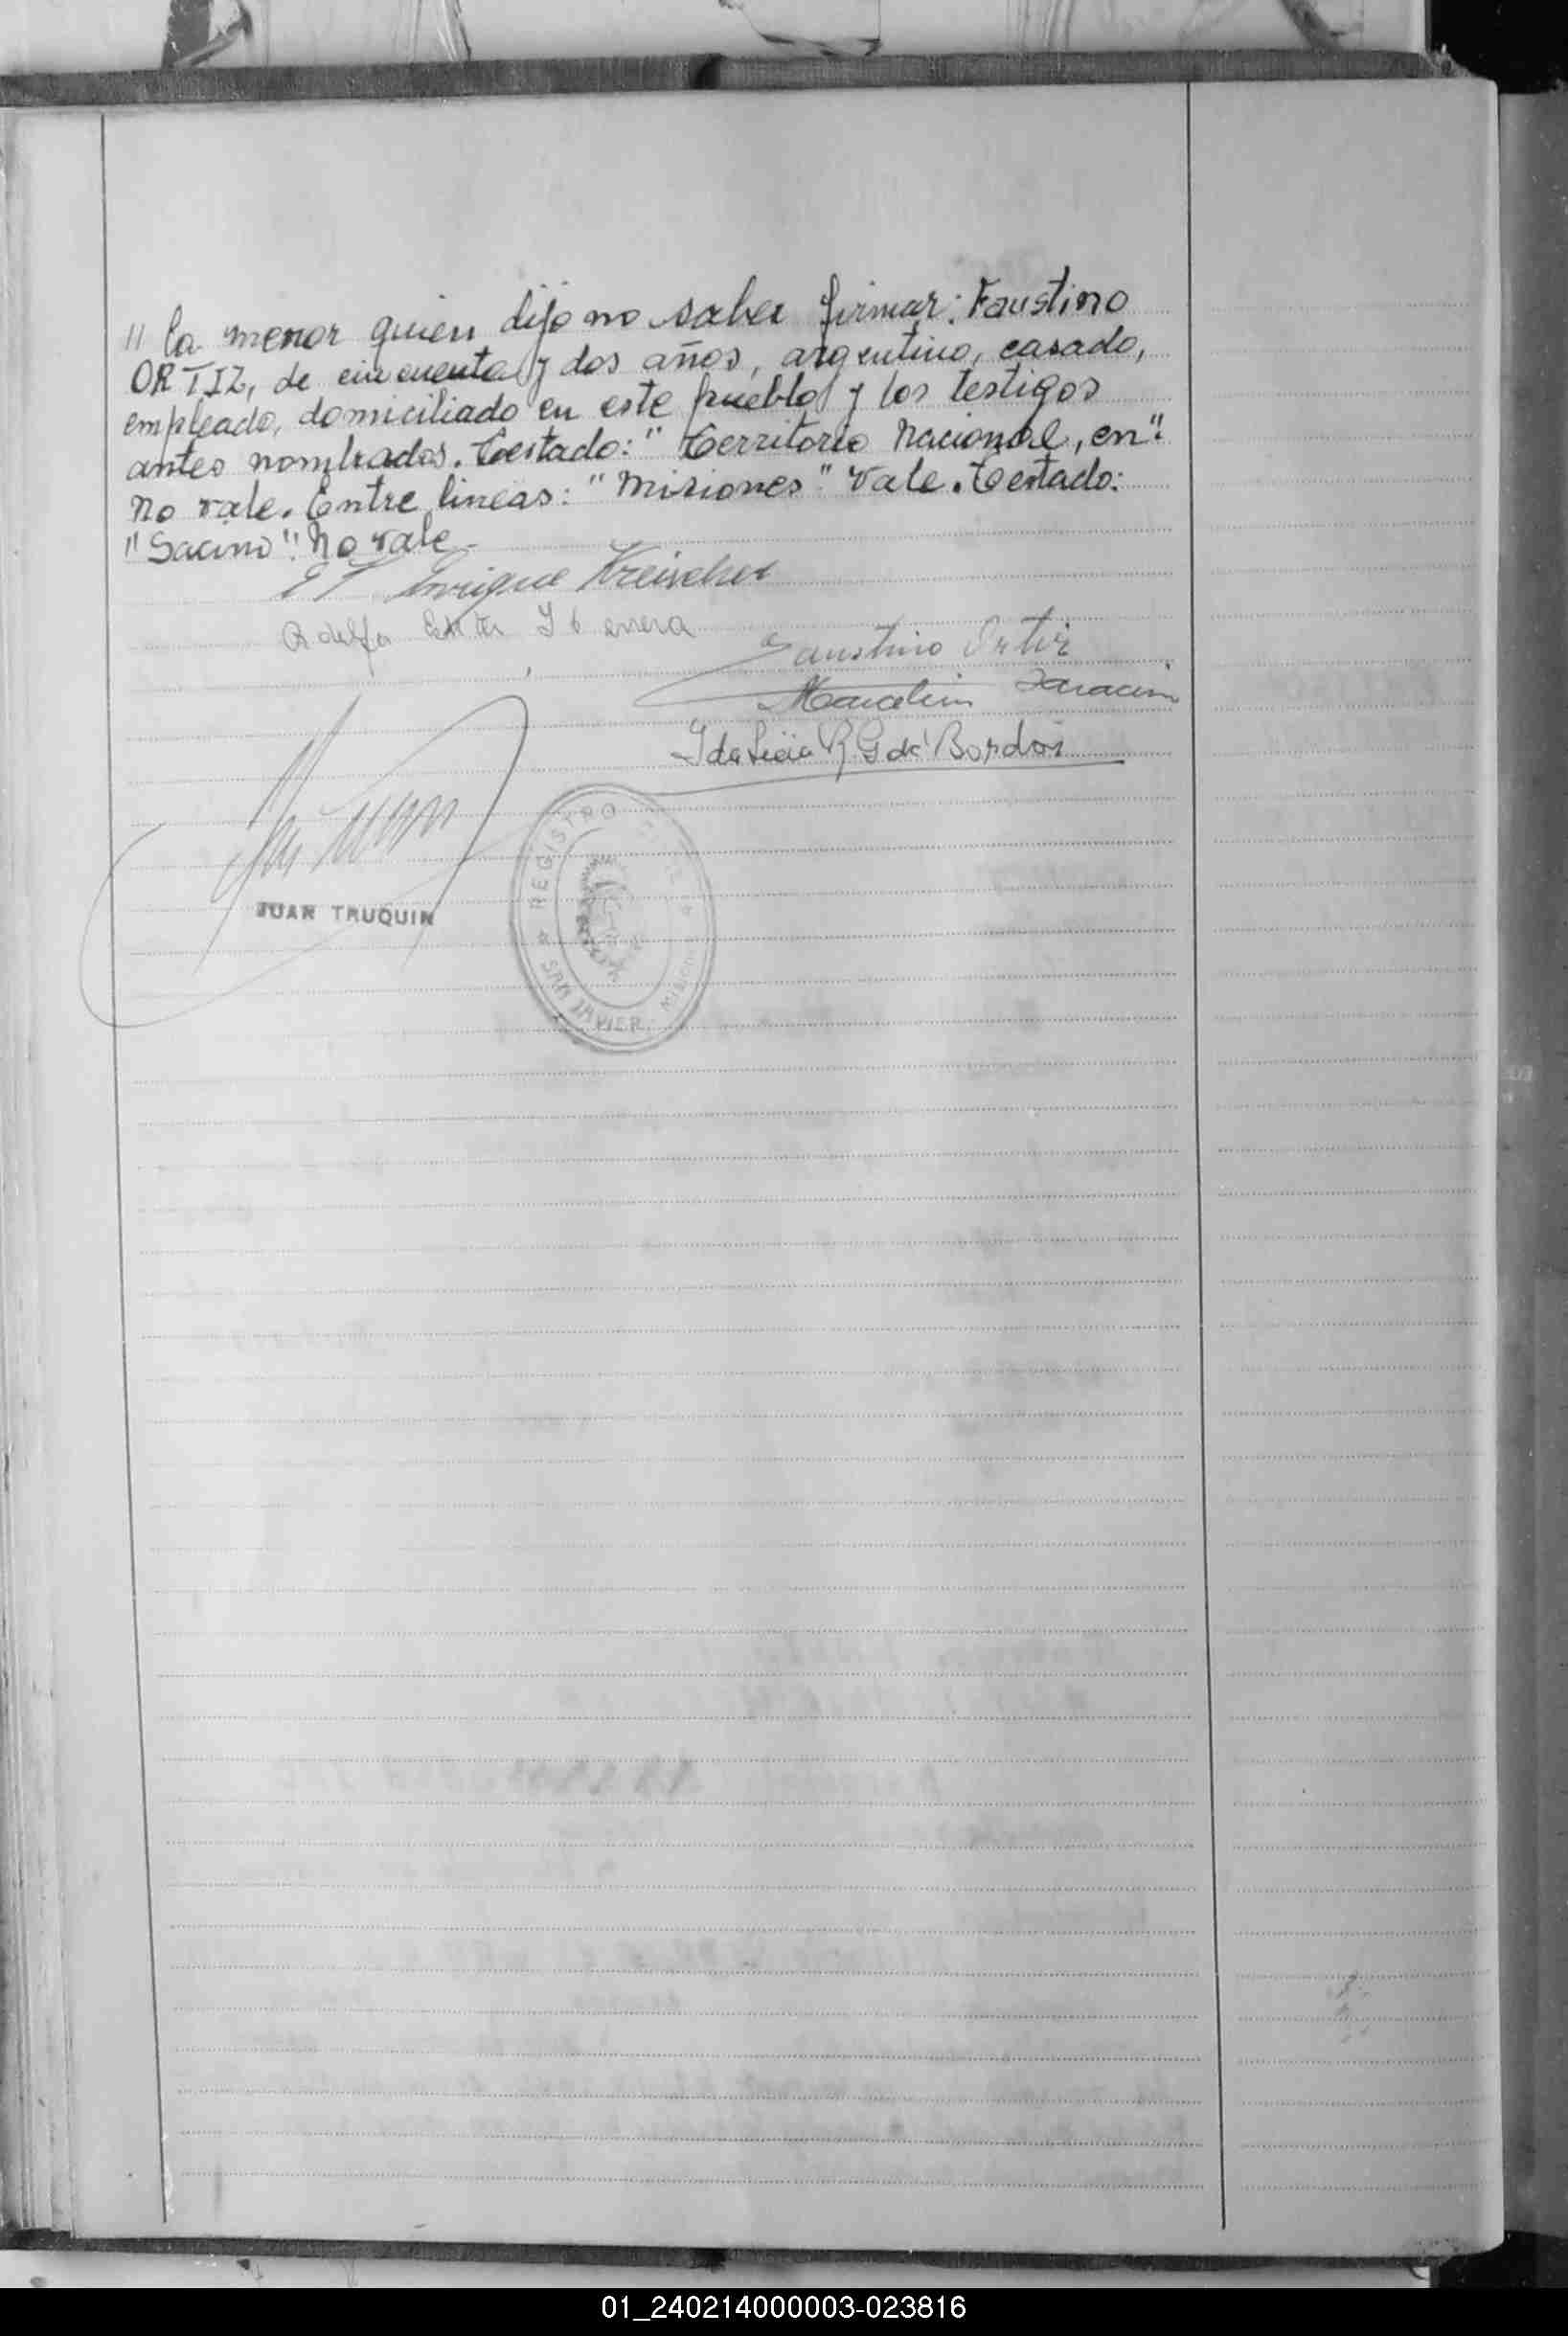 " la menor quien dijo no saber firmar: Faustino
ORTIZ, de cincuenta y dos años, argentino, casado,
empleado, domiciliado en este pueblo y los testigos
antes nombrados. Testado: "Territorio Nacional, en".
No vale. Entre lineas: "Misiones". Vale. Testado:
"Sacino". No vale
Enrique Kreischer
Adelfa Ester
Faustino Ortiz
Marcelin
Ida Licia R G de Bordón
JUAN TRUQUIN
REGISTRO
SAN JAVIER
01_240214000003-023816